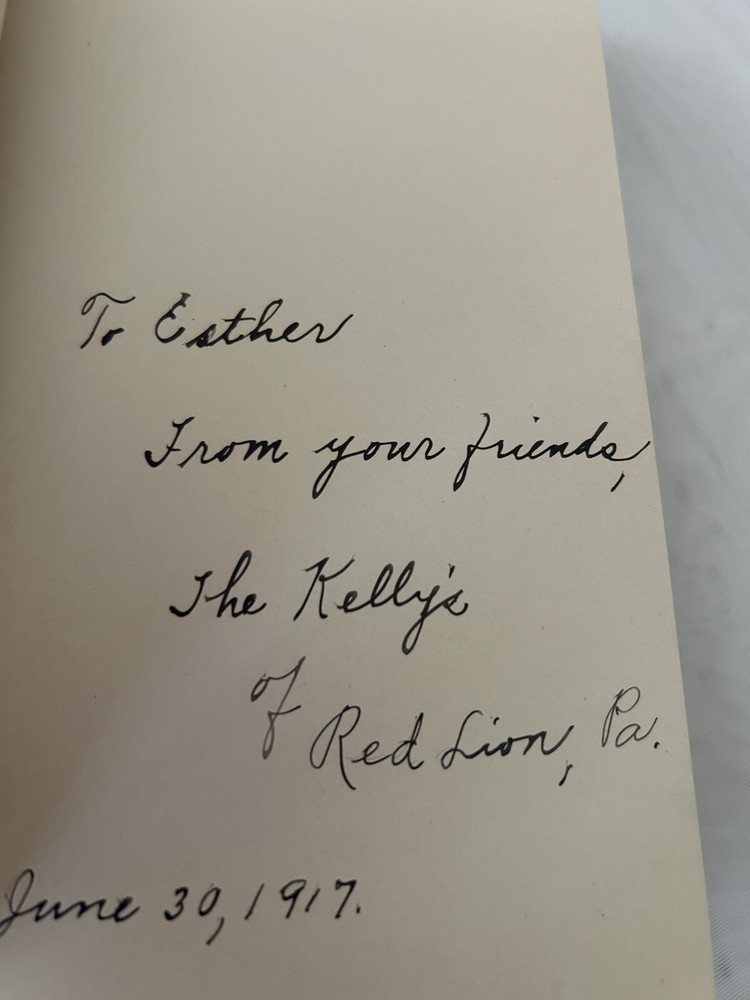 To Esther
From your friends,
The Kelly's
of
Red Lion, Pa.
June 30, 1917.